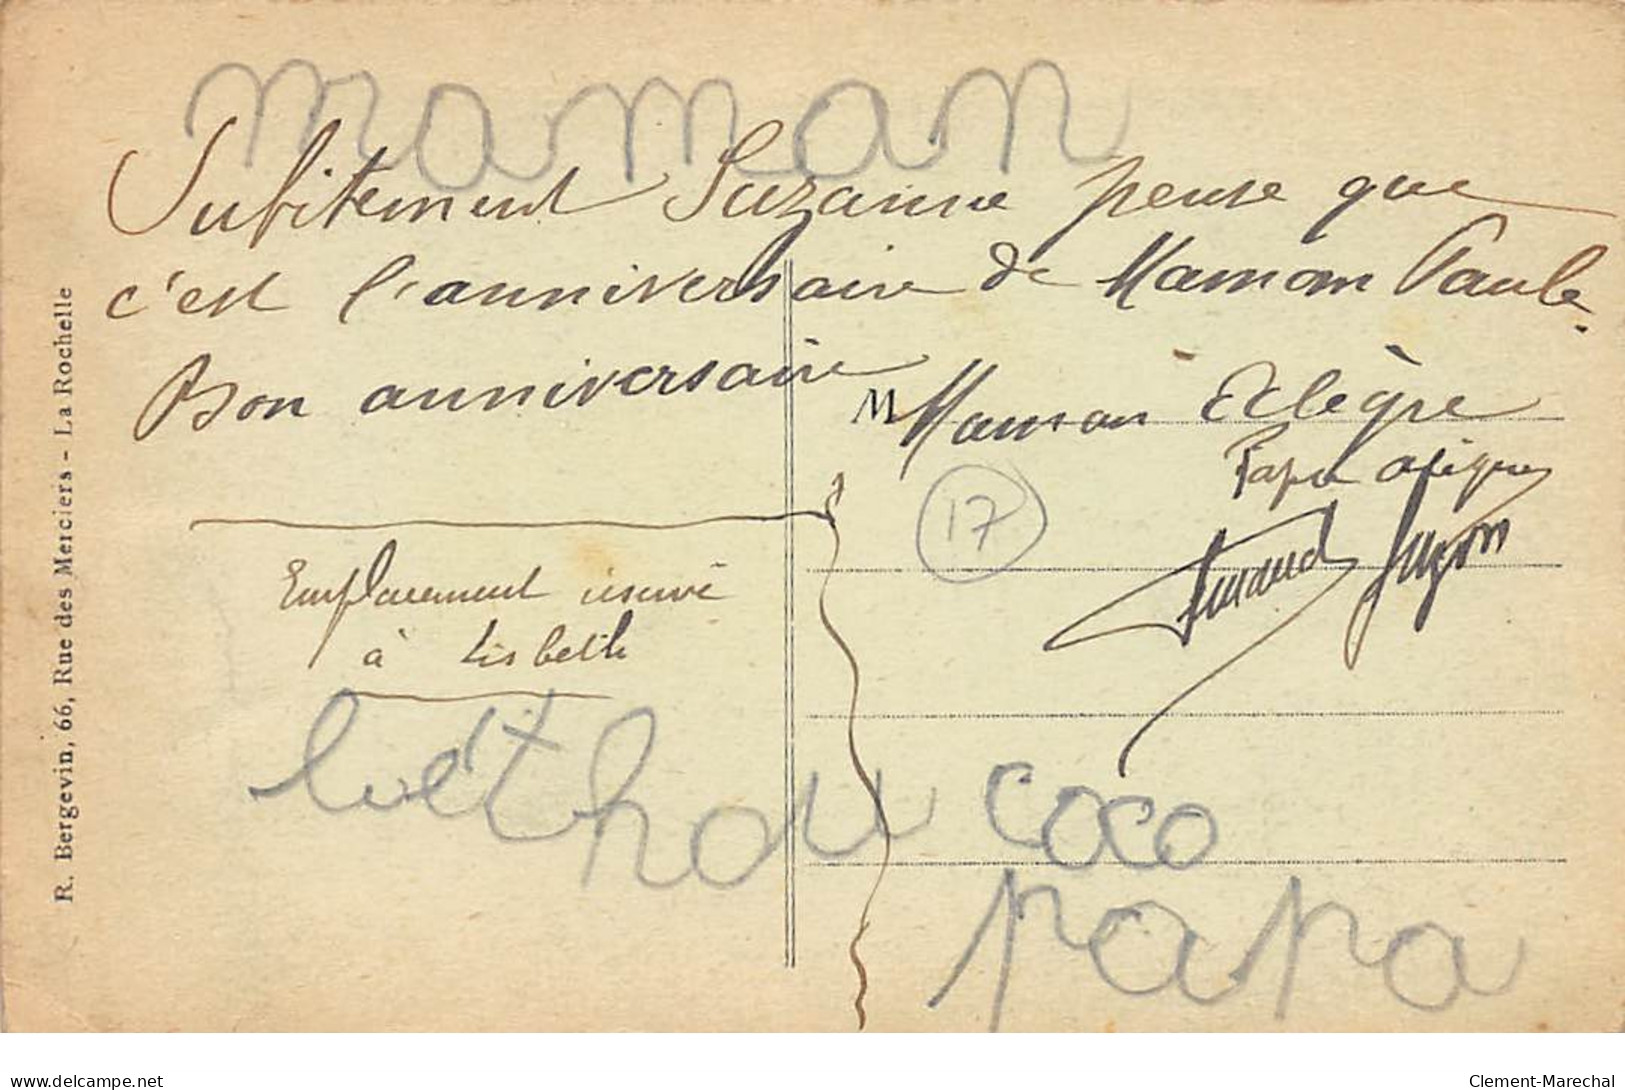 maman
Subitement Suzanne pense que
c'est l'anniversaire de Maman Paule.
Bon anniversaire
M Maman
Papa
17
Suzon
Emplacement réservé
à Lisbeth
coco
papa
R. Bergevin, 66, Rue des Merciers - La Rochelle
delcampe.net
Clement-Marechal